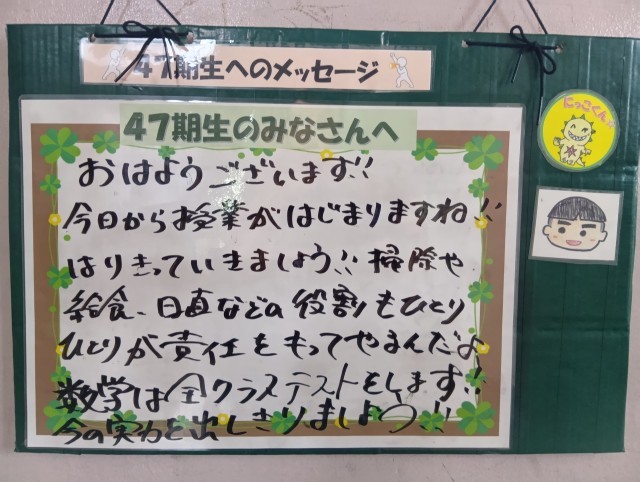 47期生へのメッセージ
47期生のみなさんへ
おはようございます!!
今日から授業がはじまりますね!!
はりきっていきましょう!! 掃除や
給食、日直などの役割もひとり
ひとりが責任をもってやるんだよ
数学は全クラステストをします!!
今の実力を出しきりましょう!!
にっこくん